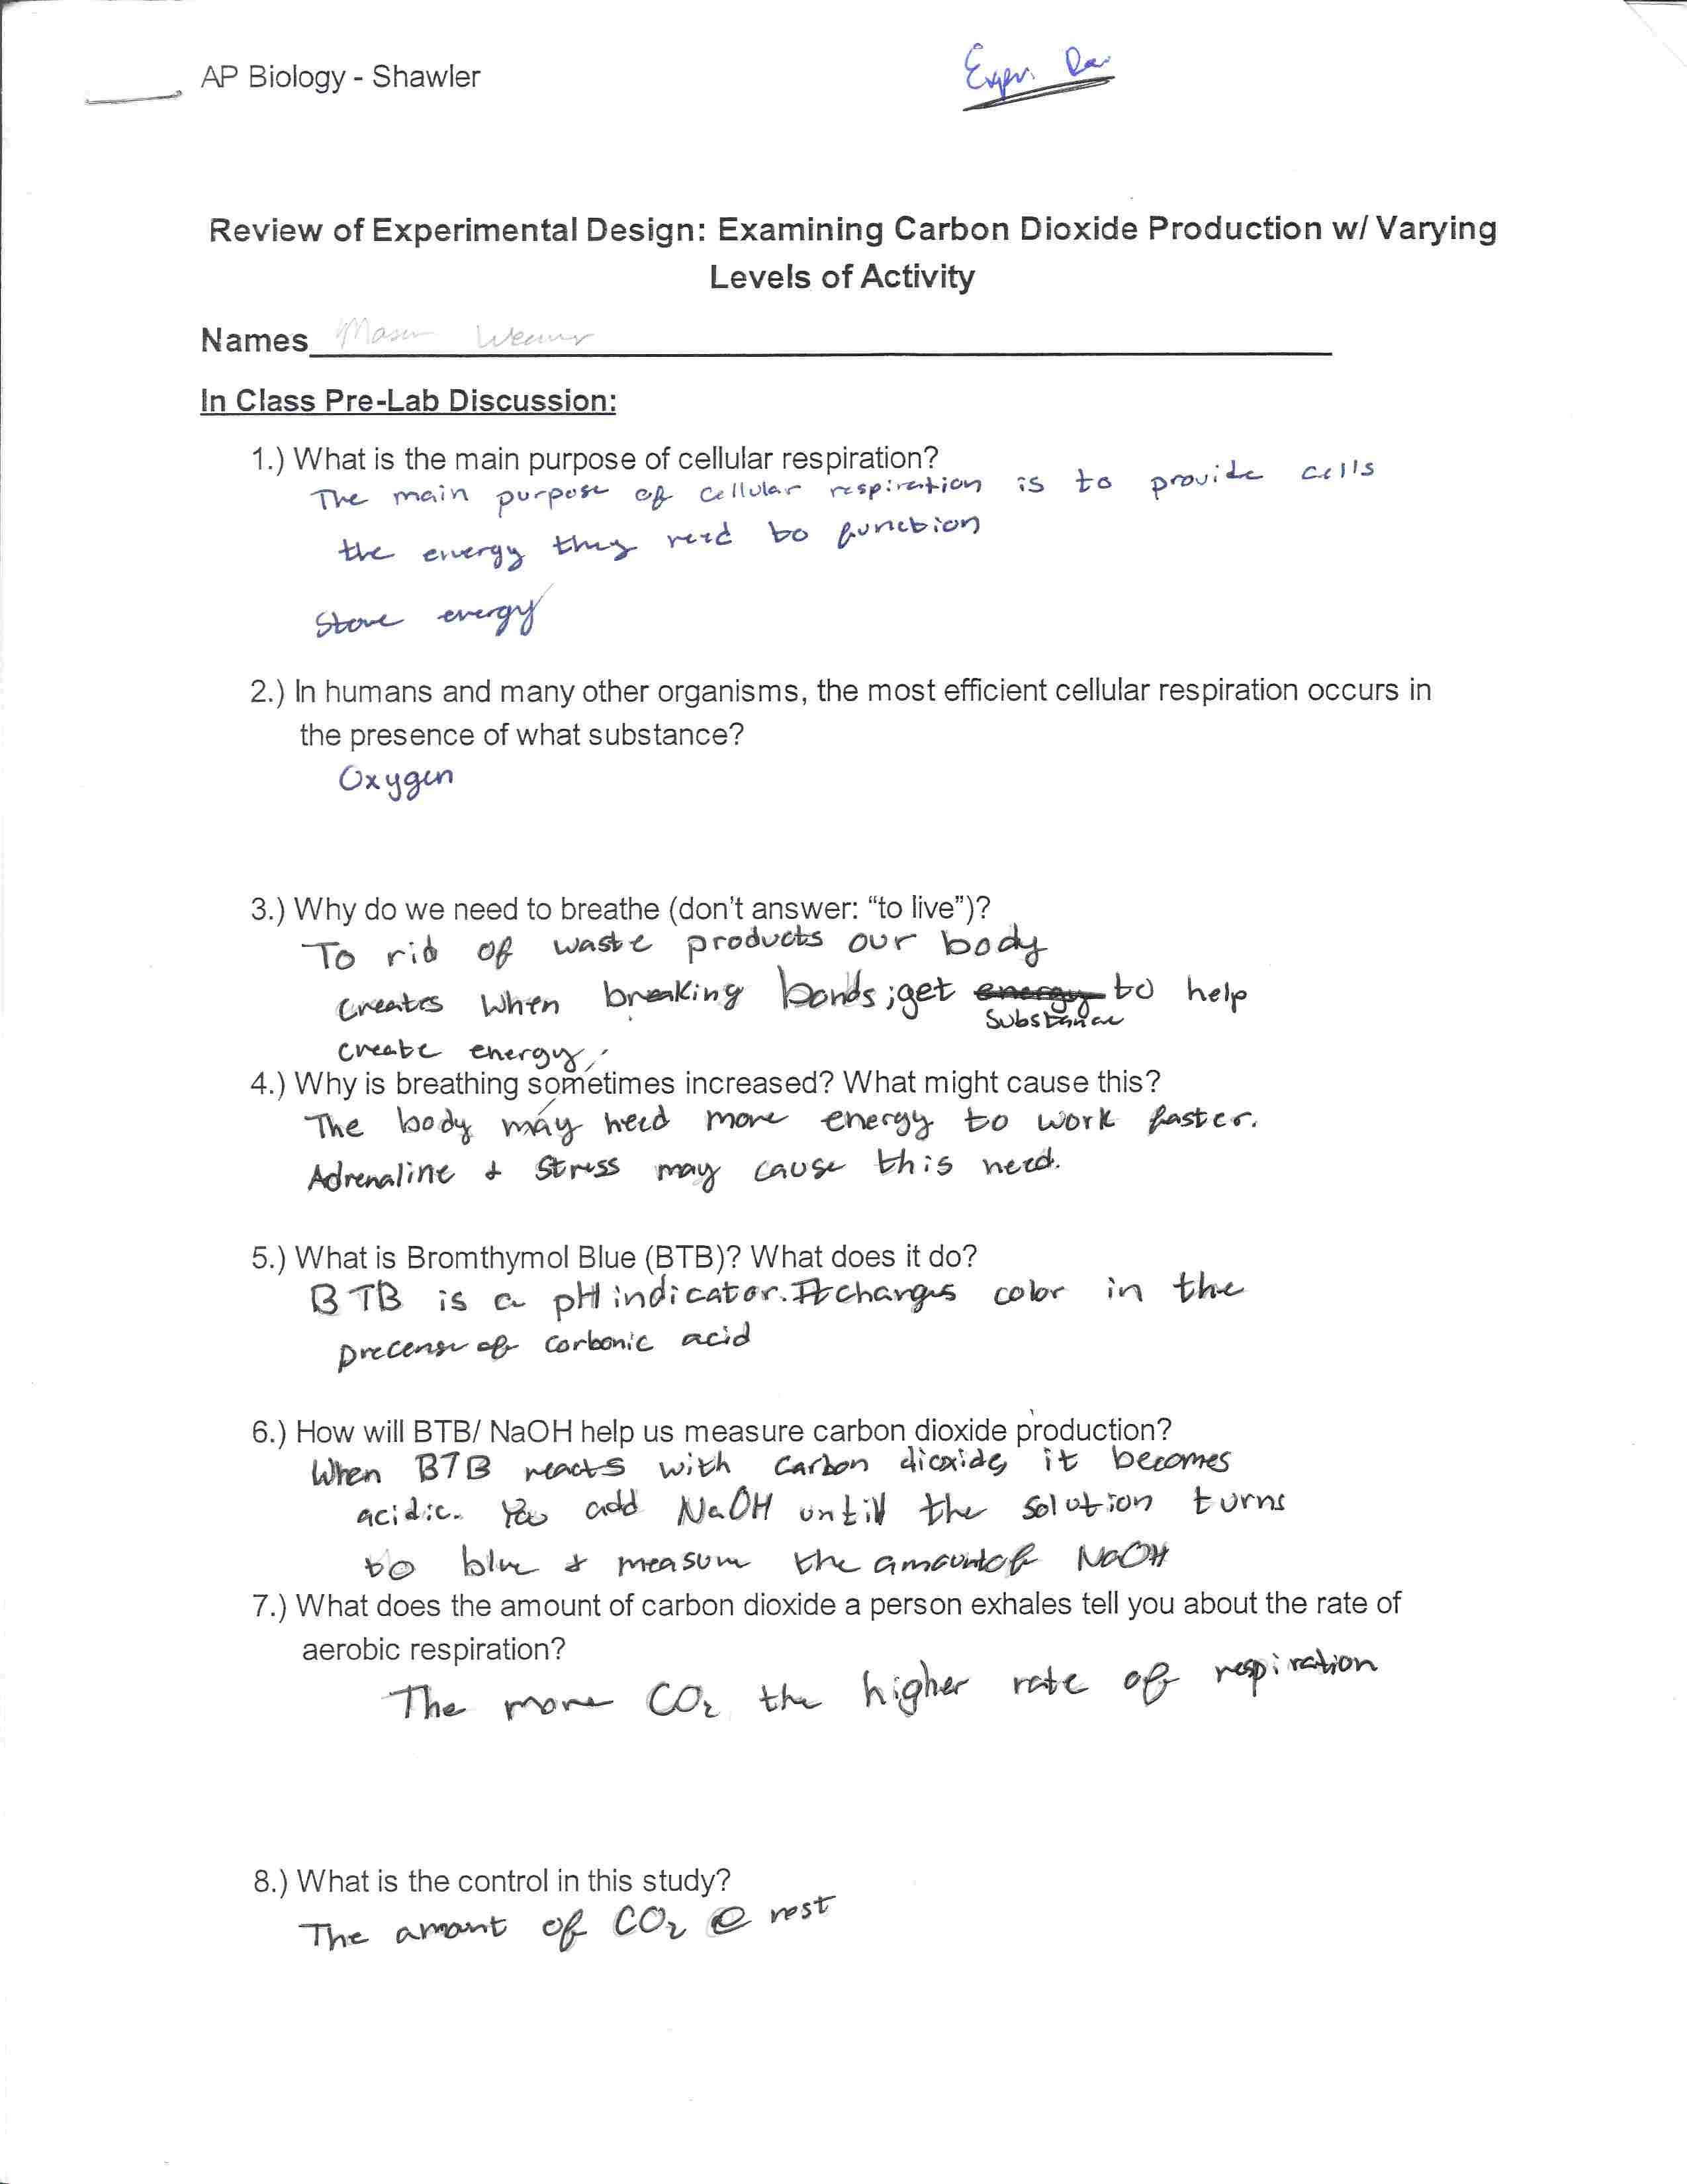 AP Biology - Shawler
Expr.
Review of Experimental Design: Examining Carbon Dioxide Production w/ Varying
Levels of Activity
Names
In Class Pre-Lab Discussion:
1.) What is the main purpose of cellular respiration?
The main purpose of cellular respiration is to provide cells
the energy they need to function
Store energy
2.) In humans and many other organisms, the most efficient cellular respiration occurs in
the presence of what substance?
Oxygen
3.) Why do we need to breathe (don't answer: "to live")?
To rid of waste products our body
creates when breaking bonds; get energy to help
substance
create energy.
4.) Why is breathing sometimes increased? What might cause this?
The body may need more energy to work faster.
Adrenaline + Stress may cause this need.
5.) What is Bromthymol Blue (BTB)? What does it do?
BTB is a pH indicator. It changes color in the
precense of carbonic acid
6.) How will BTB/ NaOH help us measure carbon dioxide production?
When BTB reacts with carbon dioxide, it becomes
acidic. You add NaOH untill the solution turns
to blue + measure the amount of NaOH
7.) What does the amount of carbon dioxide a person exhales tell you about the rate of
aerobic respiration?
The more CO2 the higher rate of respiration
8.) What is the control in this study?
The amont of CO2 @ rest